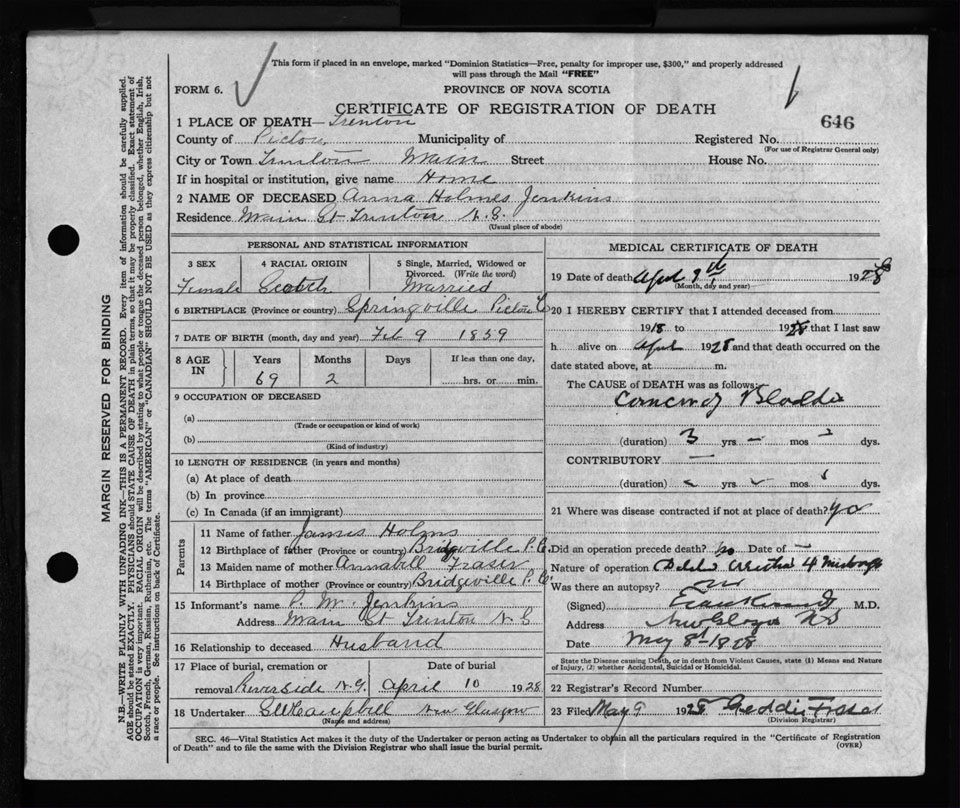 This form if placed in an envelope, marked "Dominion Statistics—Free, penalty for improper use, $300," and properly addressed
will pass through the Mail "FREE"
FORM 6.
PROVINCE OF NOVA SCOTIA
CERTIFICATE OF REGISTRATION OF DEATH
646
1 PLACE OF DEATH— Trenton
County of Pictou Municipality of Registered No.
(For use of Registrar General only)
City or Town Trenton Main Street House No.
If in hospital or institution, give name Home
2 NAME OF DECEASED Anna Holmes Jenkins
Residence Main St Trenton N.S.
(Usual place of abode)
PERSONAL AND STATISTICAL INFORMATION
3 SEX 4 RACIAL ORIGIN 5 Single, Married, Widowed or
Divorced. (Write the word)
Female Scotch Married
6 BIRTHPLACE (Province or country) Springville Pictou Co
7 DATE OF BIRTH (month, day and year) Feb 9 1859
8 AGE IN Years Months Days If less than one day,
69 2 hrs. or min.
9 OCCUPATION OF DECEASED
(a)
(Trade or occupation or kind of work)
(b)
(Kind of industry)
10 LENGTH OF RESIDENCE (in years and months)
(a) At place of death
(b) In province
(c) In Canada (if an immigrant)
Parents
11 Name of father James Holms
12 Birthplace of father (Province or country) Bridgville P.C.
13 Maiden name of mother Annabell Fraser
14 Birthplace of mother (Province or country) Bridgeville P.C.
15 Informant's name P. M. Jenkins
Address Main St Trenton N S
16 Relationship to deceased Husband
17 Place of burial, cremation or Date of burial
removal Riverside N.G. April 10 1928
18 Undertaker Campbell New Glasgow
(Name and address)
MEDICAL CERTIFICATE OF DEATH
19 Date of death April 9th 1928
(Month, day and year)
20 I HEREBY CERTIFY that I attended deceased from
1918 to 1928 that I last saw
h alive on April 1928 and that death occurred on the
date stated above, at m.
The CAUSE OF DEATH was as follows:
Cancer of Bladder
(duration) 3 yrs. — mos — dys.
CONTRIBUTORY —
(duration) yrs. mos dys.
21 Where was disease contracted if not at place of death?
Did an operation precede death? no Date of —
Nature of operation
Was there an autopsy? no
(Signed) M.D.
Address New Glasgow NS
Date May 8th 1928
State the Disease causing Death, or in death from Violent Causes, state (1) Means and Nature
of Injury, (2) whether Accidental, Suicidal or Homicidal.
22 Registrar's Record Number
23 Filed May 9 1928 Geddie Fraser
(Division Registrar)
SEC. 46—Vital Statistics Act makes it the duty of the Undertaker or person acting as Undertaker to obtain all the particulars required in the "Certificate of Registration
of Death" and to file the same with the Division Registrar who shall issue the burial permit.
(OVER)
MARGIN RESERVED FOR BINDING
N.B.—WRITE PLAINLY WITH UNFADING INK—THIS IS A PERMANENT RECORD. Every item of information should be carefully supplied.
AGE should be stated EXACTLY. PHYSICIANS should STATE CAUSE OF DEATH in plain terms, so that it may be properly classified. Exact statement of
OCCUPATION is very important. RACIAL ORIGIN will be described by stating to what people or tongue the deceased person belonged, whether English, Irish,
Scotch, French, German, Russian, Ruthenian, etc. The terms "AMERICAN" or "CANADIAN" SHOULD NOT BE USED as they express citizenship but not
a race or people. See instructions on back of Certificate.